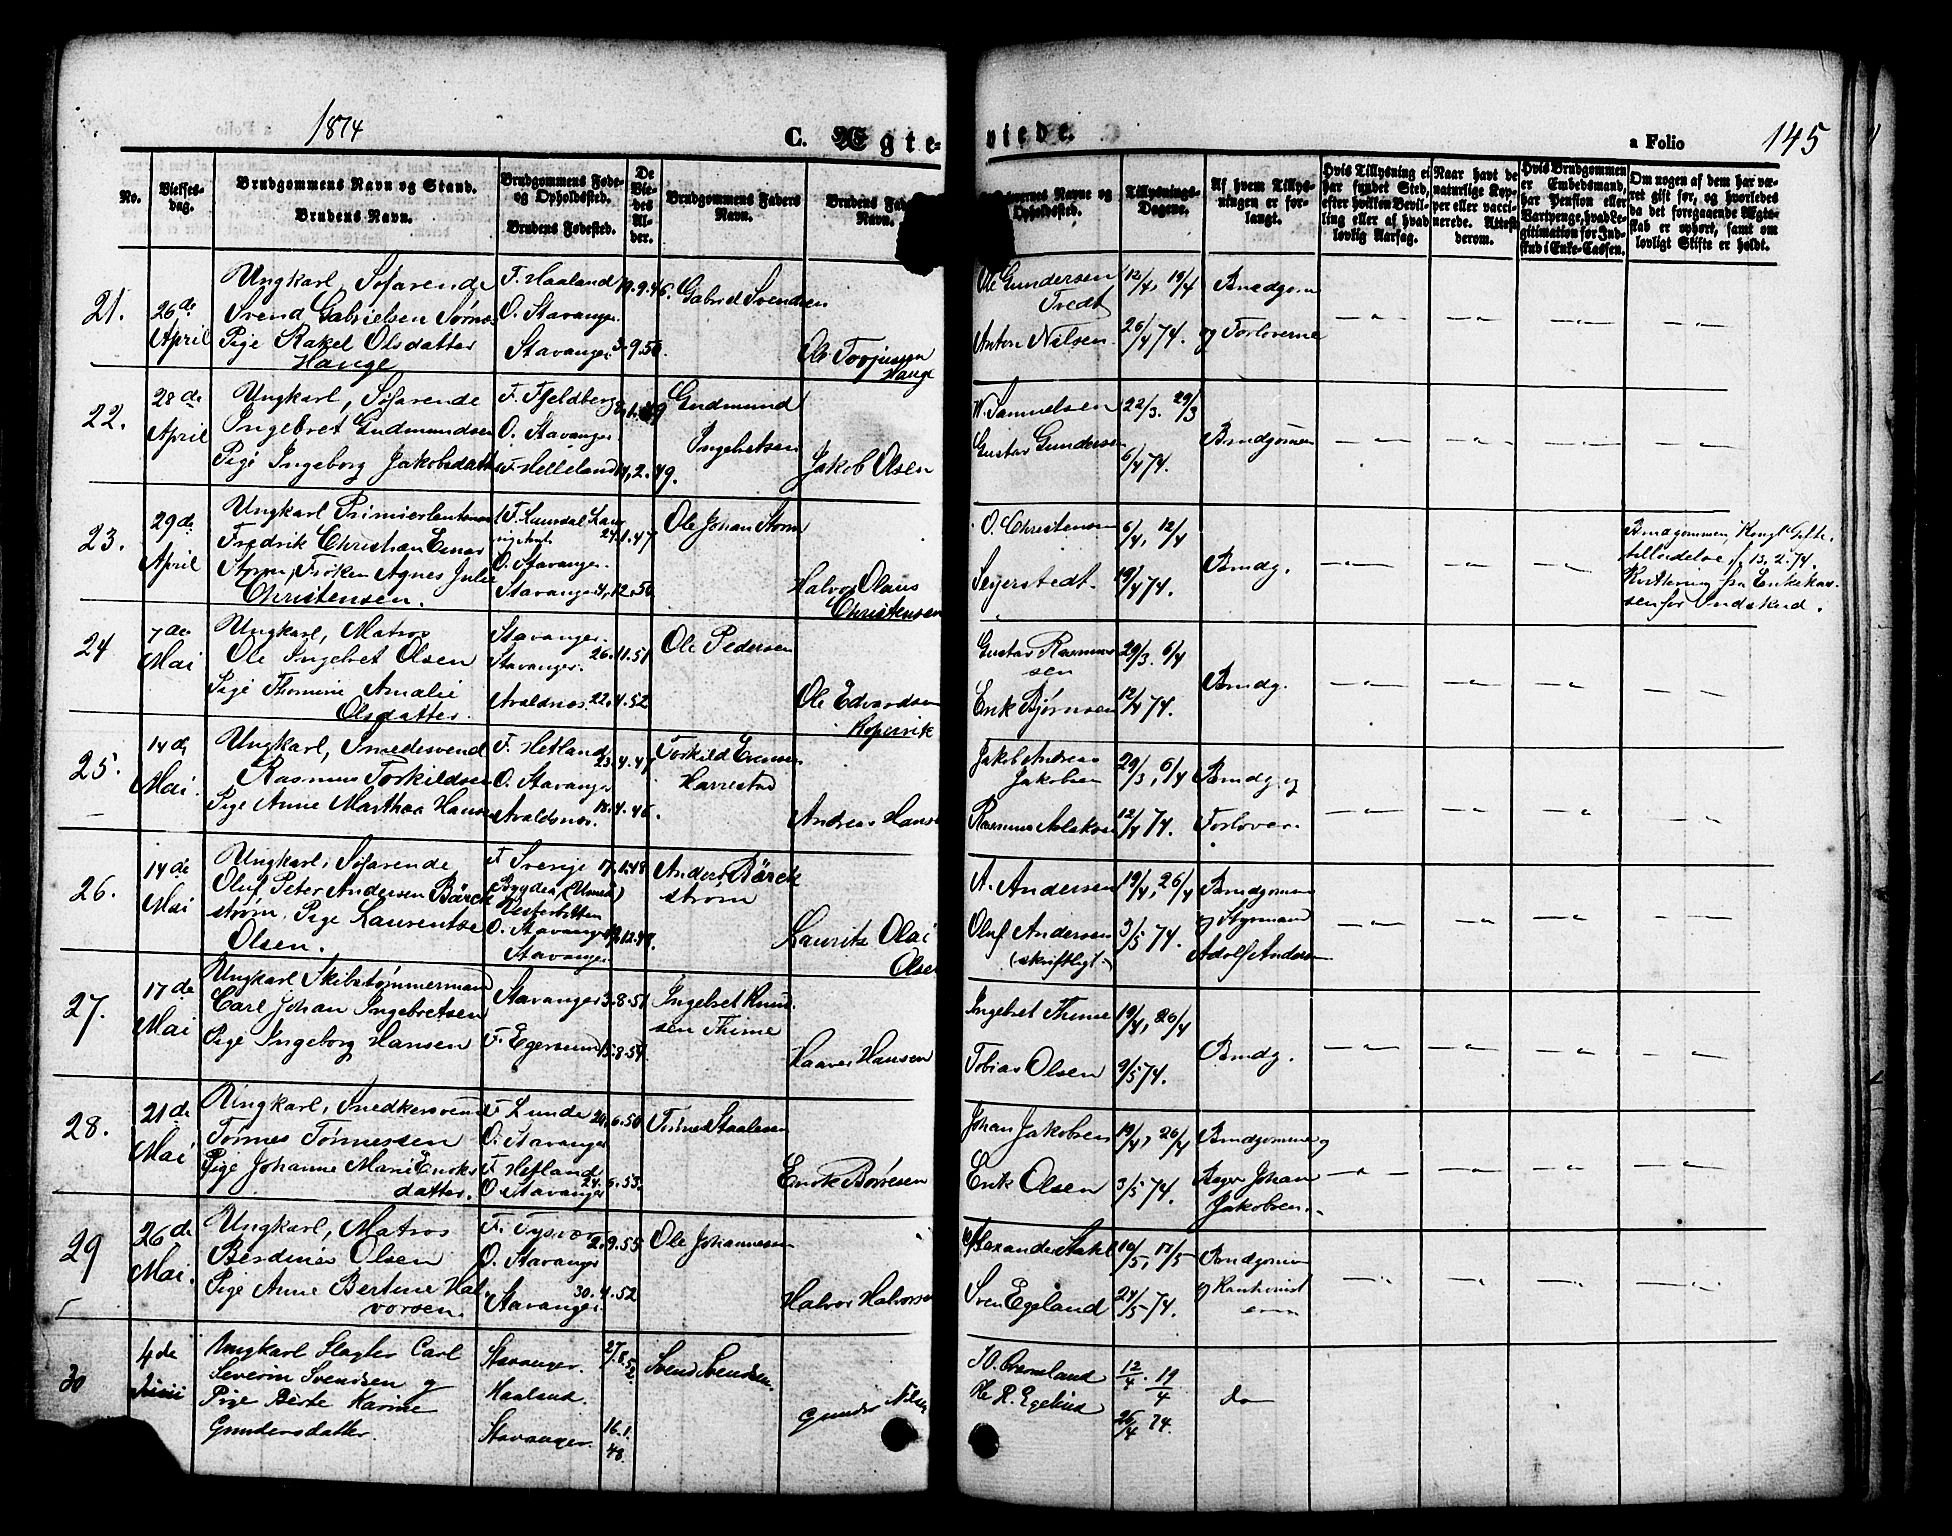 1874
C. Ægte-
viede.
a Folio
145
No.
Vielses-
dag.
Brudgommens Navn og Stand.
Brudens Navn.
Brudgommens Føde-
og Opholdssted.
Brudens Fødested.
De
Vie-
des
Al-
der.
Brudgommens Faders
Navn.
Brudens
Navn.
Navne og
Opholdssted.
Tillysnings-
Dagene.
Af hvem Tillys-
ningen er for-
langt.
Hvis Tillysning ei
har fundet Sted,
efter hvilken Bevil-
ling eller af hvad
lovlig Aarsag.
Naar havt de
naturlige Kop-
per eller vacci-
nerede. Attest
derom.
Hvis Brudgommen
er Embedsmand,
har Pension eller
Vartpenge, hvad Le-
gitimation for Ind-
skud i Enke-Cassen.
Om nogen af dem har væ-
ret gift før, og hvorledes
da det foregaaende Ægte-
skab er ophørt, samt om
lovligt Skifte er holdt.
21.
26de
April
Ungkarl, Søfarende
Svend Gabrielsen Sørnes
Pige Rakel Olsdatter
Hauge
F. Haaland
O. Stavanger.
Stavanger.
19.9.46.
3.9.50.
Gabriel Svendsen
Ole Torjusen
Hauge
Ole Gundersen
Tredt
Anton Nilsen
12/4, 19/4
26/4 74.
Brudgom
og Forloverne
22.
28de
April
Ungkarl, Søfarende
Ingebret Gudmundsen
Pige Ingeborg Jakobsdatt
F. Fjeldberg
O. Stavanger.
F. Helleland
14,2.49.
Gudmund
Ingebretsen
Jakob Olsen
W. Samuelsen
Gustav Gundersen
22/3. 29/3
6/4 74.
Brudgommen
23.
29de
April
Ungkarl Primierlieutenant
Fredrik Christian Einar
Storm, Frøken Agnes Julie
Christensen.
O. Stavanger.
Stavanger
24.1.47
4,12.50
Ole Johan Storm
Halvor Olaus
Christensen
O. Christensen
Seyerstedt.
6/4, 12/4
19/4 74.
Brudg.
Brudgommen Kongl. Gifte-
tilladelse f. 13.2.74.
Kvittering fra Enkekas-
sen for Indskud.
24
7de
Mai
Ungkarl, Matros
Ole Ingebret Olsen
Pige Thomine Amalie
Olsdatter.
Stavanger.
Stavanger.
Avaldsnes
26.11.51
22.4.52
Ole Pedersen
Ole Edvardsen
Kopervik
Gustav Rasmus
sen
Erik Bjørnsen
29/3. 6/4
12/4 74.
Brudg.
25.
14de
Mai.
Ungkarl, Smedesvend
Rasmus Torkildsen
Pige Anne Marthea Hansen
F. Hetland
O. Stavanger
Avaldsnes.
23.4.47
18.4.46.
Torkild Evensen
Harrestad
Andreas Hans
Jakob Andreas
Jakobsen
Rasmus Aslaksen
29/3, 6/4
12/4 74.
Brudg. og
Forlover.
26.
14de
Mai
Ungkarl, Søfarende
Oluf Peter Andersen Bärck
strøm, Pige Laurentse
Olsen.
F. Sverige
Bygdeå (Umeå)
Vesterbotten
O. Stavanger
Stavanger
17.1.48
Anders Bärck
strøm
Lauritz Olai
Olse
A. Andersen
Oluf Andersen
(skriftligt)
19/4, 26/4
3/5 74.
Brudgommen
og Styrmand
Adolf Andersen
27.
17de
Mai
Ungkarl Skibstømmermand
Carl Johan Ingebretsen
Pige Ingeborg Hansen
Stavanger
F. Egersund
3.8.51
15.8.54.
Ingebret Knud
sen Thime
Haaver Hansen
Ingebret Thime
Tobias Olsen
19/4, 26/4
9/5 74.
Brudg.
28.
21de
Mai
Ungkarl, Snedkersvend
Tønnes Tønnessen
Pige Johanne Marie Enoks
datter.
F. Lunde
O. Stavanger
F. Hetland
O. Stavanger
24.6.50
24.6.53.
Tønnes Staalesen
Enok Børresen
Johan Jakobsen
Erik Olsen
19/4, 26/4
3/5 74.
Brudgommen og
Bager Johan
Jakobsen.
29
26de
Mai.
Ungkarl, Matros
Berdines Olsen
Pige Anne Bertine Hal
vorsen
F. Tysvær
O. Stavanger
Stavanger
2.9.55
30.4.52
Ole Johannesen
Halvor Halvorsen
Alexander Stahl
Sven Egeland
10/5, 17/5
24/5 74.
Brudgommen
og Kautionist
erne
30
4de
Juni
Ungkarl Slagter Carl
Severin Svendsen og
Pige Berte Karine
Gundersdatter.
Stavanger.
Haaland.
Stavanger.
16.1.
48
Svend Svendsen.
Gunder Nilsen
H. R. Egelund
12/4. 19/4
26/4 74.
do